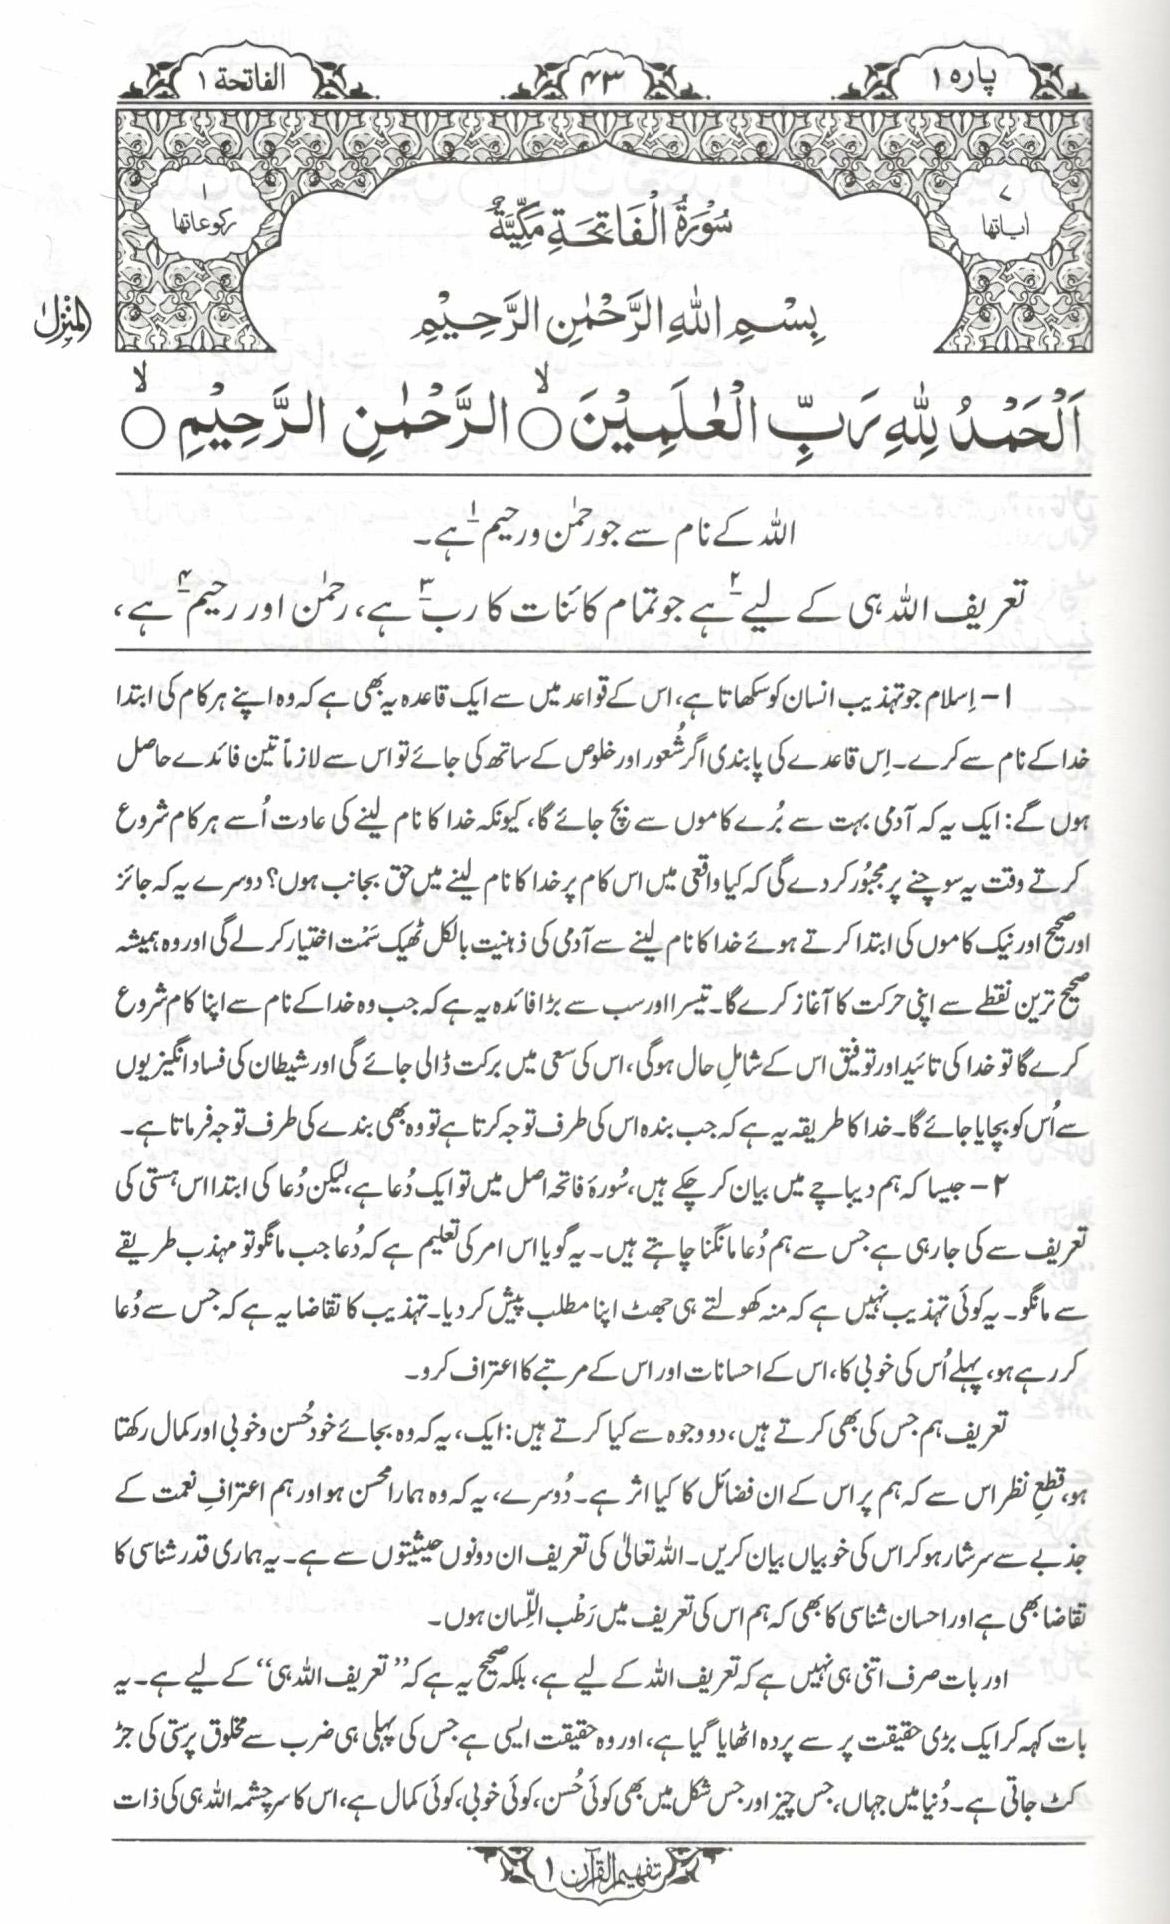 پارہ ۱
۴۳
الفاتحة ۱
۷
اٰیاتھا
سُوْرَةُ الْفَاتِحَةِ مَكِّيَّةٌ
۱
رکوعاتھا
بِسْمِ اللّٰهِ الرَّحْمٰنِ الرَّحِيْمِ
اَلْحَمْدُ لِلّٰهِ رَبِّ الْعٰلَمِيْنَ ۙ○ الرَّحْمٰنِ الرَّحِيْمِ ۙ○
اللہ کے نام سے جو رحمٰن و رحیم۱ ہے۔
تعریف اللہ ہی کے لیے۲ ہے جو تمام کائنات کا رب۳ ہے، رحمٰن اور رحیم۴ ہے،
۱- اِسلام جو تہذیب انسان کو سکھاتا ہے، اس کے قواعد میں سے ایک قاعدہ یہ بھی ہے کہ وہ اپنے ہر کام کی ابتدا
خدا کے نام سے کرے۔ اِس قاعدے کی پابندی اگر شُعور اور خلوص کے ساتھ کی جائے تو اس سے لازماً تین فائدے حاصل
ہوں گے: ایک یہ کہ آدمی بہت سے بُرے کاموں سے بچ جائے گا، کیونکہ خدا کا نام لینے کی عادت اُسے ہر کام شروع
کرتے وقت یہ سوچنے پر مجبُور کر دے گی کہ کیا واقعی میں اس کام پر خدا کا نام لینے میں حق بجانب ہوں؟ دوسرے یہ کہ جائز
اور صحیح اور نیک کاموں کی ابتدا کرتے ہوئے خدا کا نام لینے سے آدمی کی ذہنیت بالکل ٹھیک سَمْت اختیار کر لے گی اور وہ ہمیشہ
صحیح ترین نقطے سے اپنی حرکت کا آغاز کرے گا۔ تیسرا اور سب سے بڑا فائدہ یہ ہے کہ جب وہ خدا کے نام سے اپنا کام شروع
کرے گا تو خدا کی تائید اور توفیق اس کے شاملِ حال ہوگی، اس کی سعی میں برکت ڈالی جائے گی اور شیطان کی فساد انگیزیوں
سے اُس کو بچایا جائے گا۔ خدا کا طریقہ یہ ہے کہ جب بندہ اس کی طرف توجہ کرتا ہے تو وہ بھی بندے کی طرف توجہ فرماتا ہے۔
۲- جیسا کہ ہم دیباچے میں بیان کر چکے ہیں، سُورۂ فاتحہ اصل میں تو ایک دُعا ہے، لیکن دُعا کی ابتدا اس ہستی کی
تعریف سے کی جا رہی ہے جس سے ہم دُعا مانگنا چاہتے ہیں۔ یہ گویا اس امر کی تعلیم ہے کہ دُعا جب مانگو تو مہذب طریقے
سے مانگو۔ یہ کوئی تہذیب نہیں ہے کہ منہ کھولتے ہی جھٹ اپنا مطلب پیش کر دیا۔ تہذیب کا تقاضا یہ ہے کہ جس سے دُعا
کر رہے ہو، پہلے اُس کی خوبی کا، اس کے احسانات اور اس کے مرتبے کا اعتراف کرو۔
تعریف ہم جس کی بھی کرتے ہیں، دو وجوہ سے کیا کرتے ہیں: ایک، یہ کہ وہ بجائے خود حُسن و خوبی اور کمال رکھتا
ہو، قطعِ نظر اس سے کہ ہم پر اس کے ان فضائل کا کیا اثر ہے۔ دُوسرے، یہ کہ وہ ہمارا محسن ہو اور ہم اعترافِ نعمت کے
جذبے سے سرشار ہو کر اس کی خوبیاں بیان کریں۔ اللہ تعالیٰ کی تعریف ان دونوں حیثیتوں سے ہے۔ یہ ہماری قدر شناسی کا
تقاضا بھی ہے اور احسان شناسی کا بھی کہ ہم اس کی تعریف میں رَطْب اللِّسان ہوں۔
اور بات صرف اتنی ہی نہیں ہے کہ تعریف اللہ کے لیے ہے، بلکہ صحیح یہ ہے کہ ”تعریف اللہ ہی“ کے لیے ہے۔ یہ
بات کہہ کر ایک بڑی حقیقت پر سے پردہ اٹھایا گیا ہے، اور وہ حقیقت ایسی ہے جس کی پہلی ہی ضرب سے مخلوق پرستی کی جڑ
کٹ جاتی ہے۔ دُنیا میں جہاں، جس چیز اور جس شکل میں بھی کوئی حُسن، کوئی خوبی، کوئی کمال ہے، اس کا سرچشمہ اللہ ہی کی ذات
تفہیم القرآن ۱